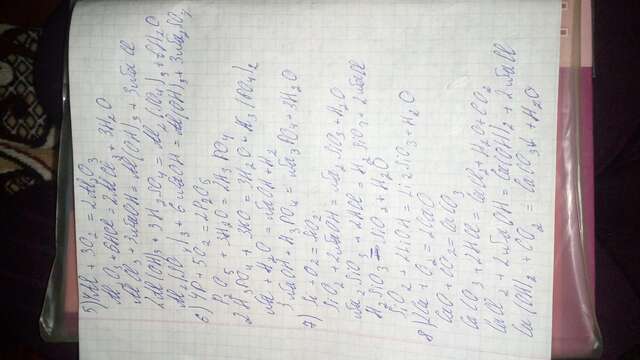 5) 4Al + 3O2 = 2Al2O3
Al2O3 + 6HCl = 2AlCl3 + 3H2O
AlCl3 + 3NaOH = Al(OH)3 + 3NaCl
2Al(OH)3 + 3H2SO4 = Al2(SO4)3 + 6H2O
Al2(SO4)3 + 6NaOH = 2Al(OH)3 + 3Na2SO4
6) 4P + 5O2 = 2P2O5
P2O5 + 3H2O = 2H3PO4
2H3PO4 + 3KO = 3H2O + K3(PO4)2
Na + H2O = NaOH + H2
3NaOH + H3PO4 = Na3PO4 + 3H2O
7) Si + O2 = SiO2
SiO2 + 2NaOH = Na2SiO3 + H2O
Na2SiO3 + 2HCl = H2SiO3 + 2NaCl
H2SiO3 = SiO2 + H2O
SiO2 + 2LiOH = Li2SiO3 + H2O
8) 2Ca + O2 = 2CaO
CaO + CO2 = CaCO3
CaCO3 + 2HCl = CaCl2 + H2O + CO2
CaCl2 + 2NaOH = Ca(OH)2 + 2NaCl
Ca(OH)2 + CO2 = CaCO3↓ + H2O